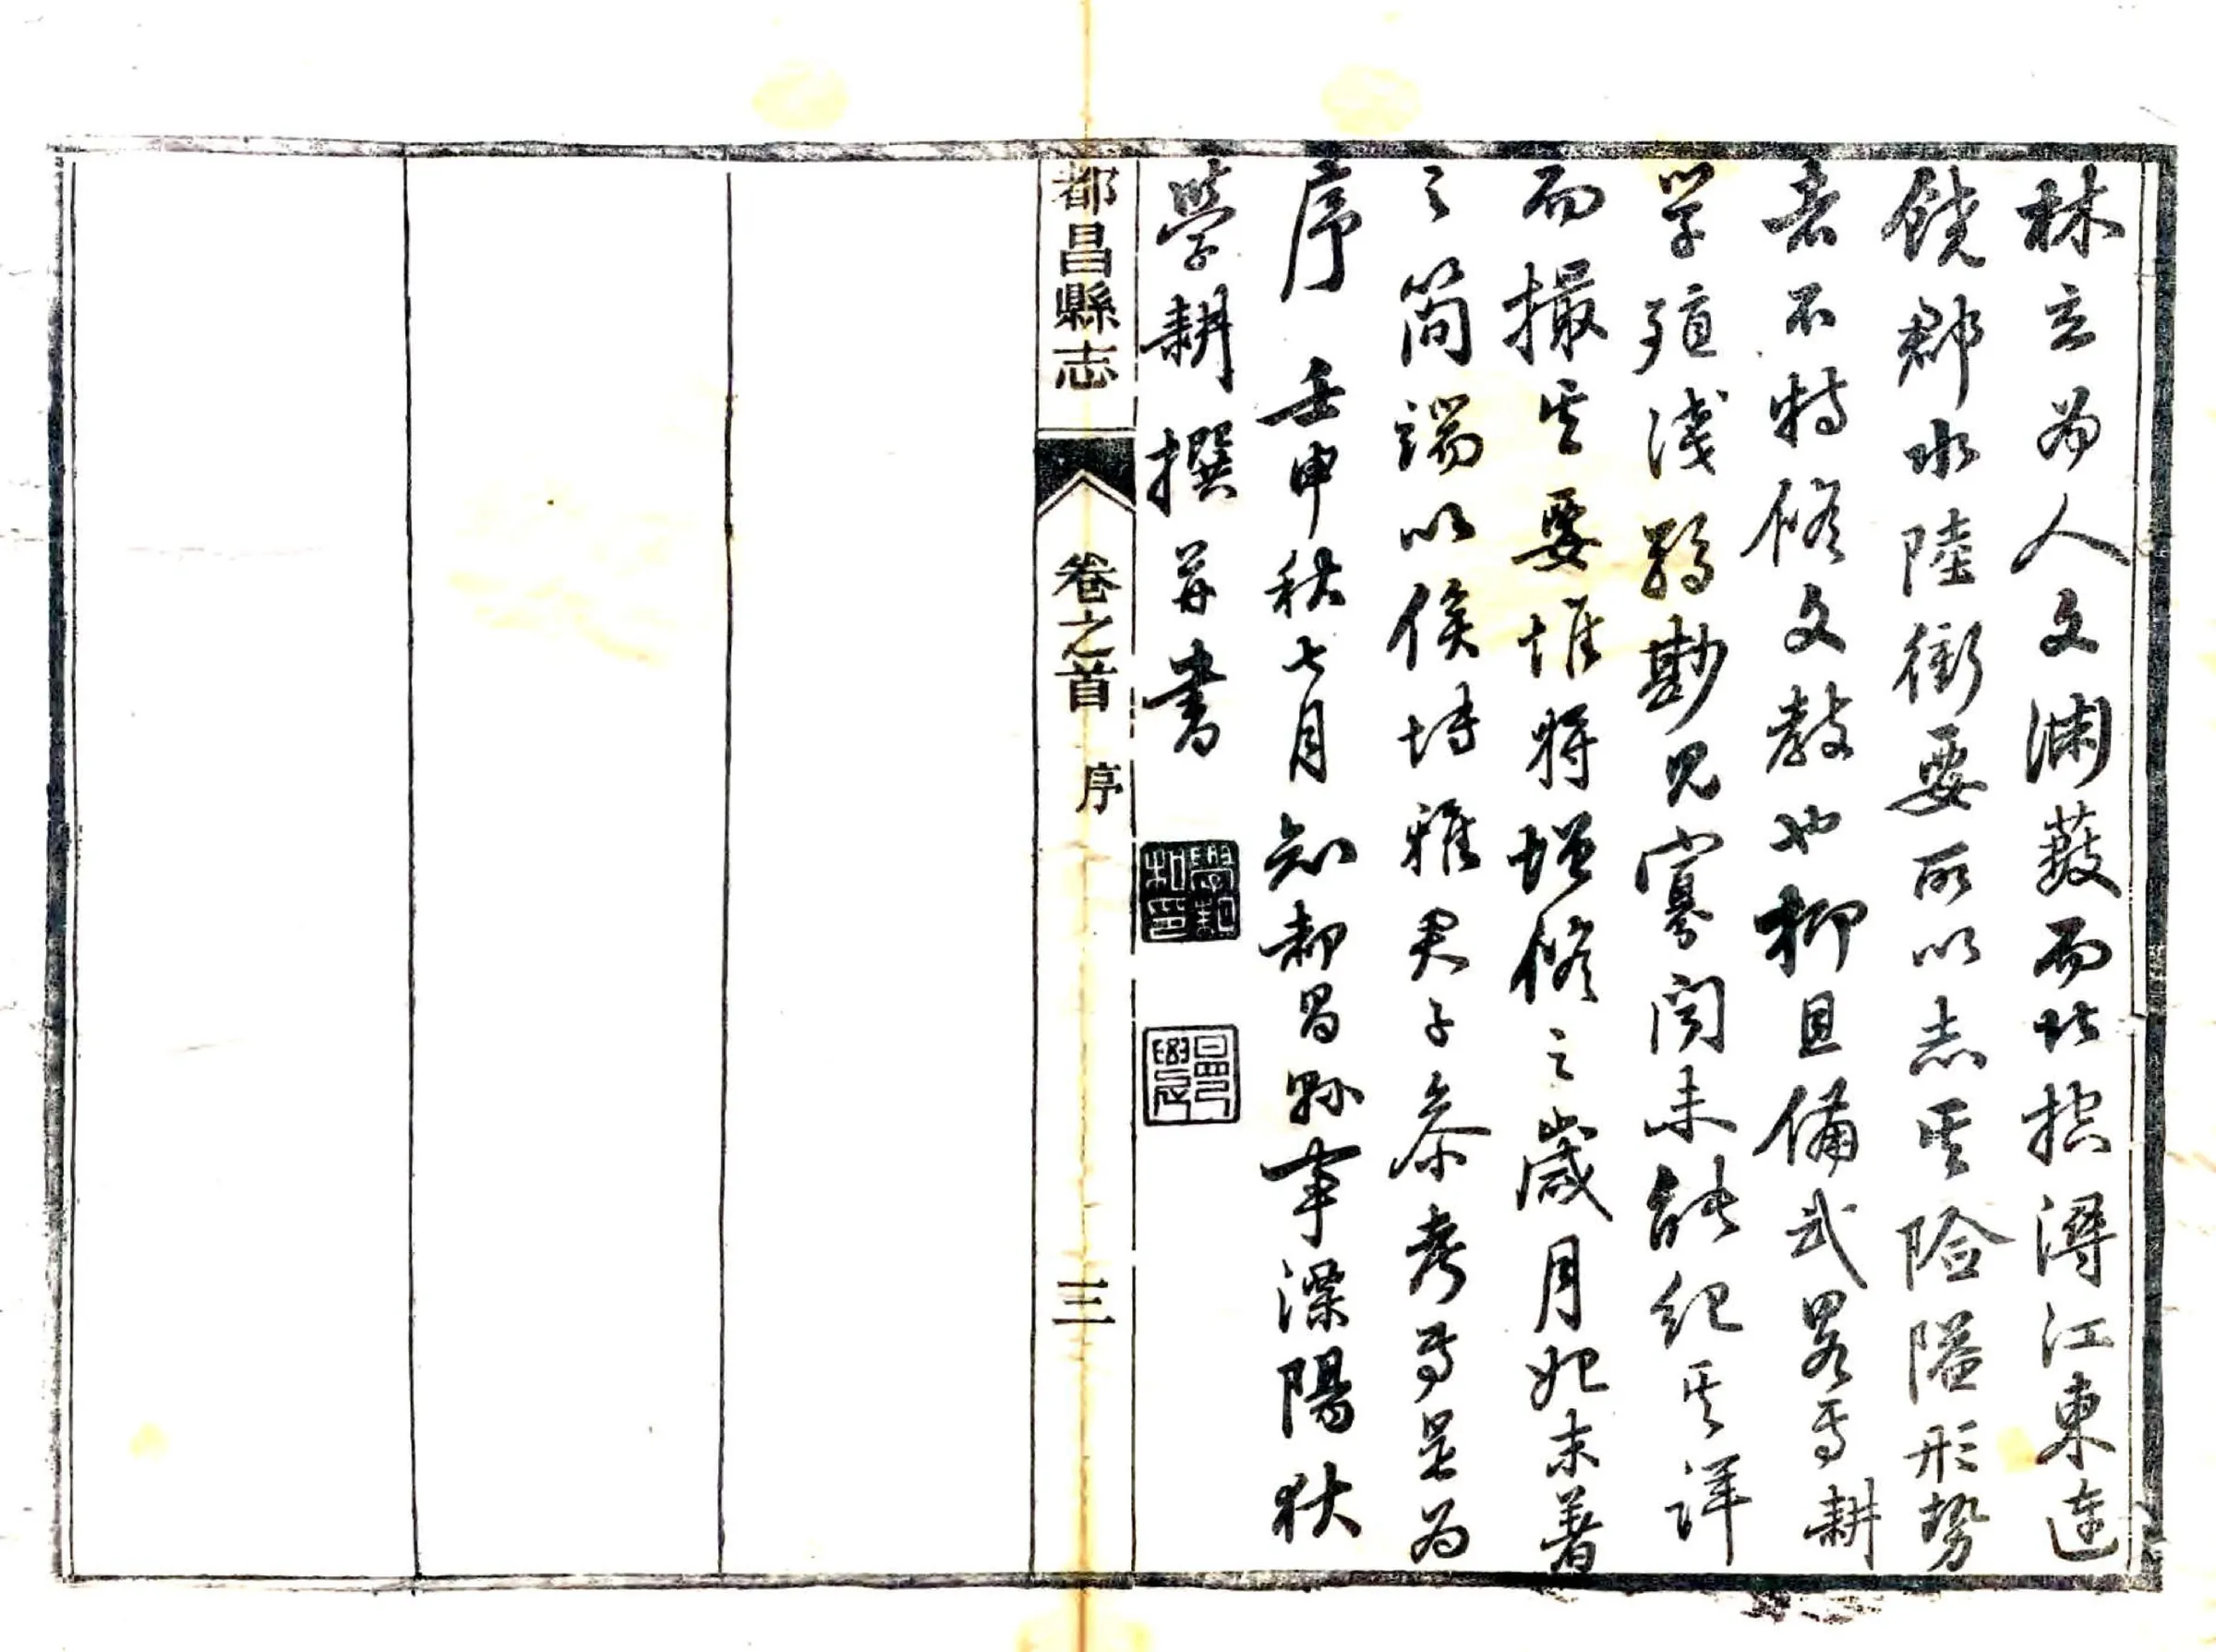 林立為人文淵薮而北控潯江東連
饒郡水陸衝要所以志其險隘形勢
者不特修文教也抑且備武畧焉耕
学殖淺弱尠見寡聞未能紀其詳
而撮其要惟將增修之歲月始末著
之簡端以俟博雅君子叅考焉是為
序 壬申秋七月知都昌縣事溧陽狄
學耕撰并書
都昌縣志
卷之首 序
三